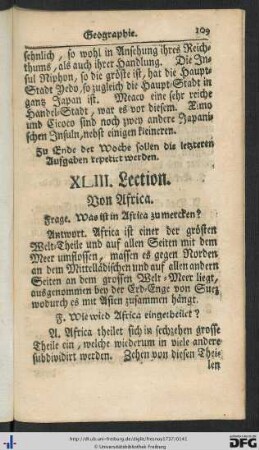 Geographie. 109
sehnlich, so wohl in Ansehung ihres Reich-
thums, als auch ihrer Handlung. Die In-
sul Niphon, so die gröste ist, hat die Haupt-
Stadt Jedo, so zugleich die Haupt-Stadt in
gantz Japan ist. Meaco eine sehr reiche
Handel-Stadt, war es vor diesem. Ximo
und Cicoco sind noch zwey andere Japani-
schen Insuln, nebst einigen kleineren.
Zu Ende der Woche sollen die letzteren
Aufgaben repetirt werden.
XLIII. Lection.
Von Africa.
Frage. Was ist in Africa zu mercken?
Antwort. Africa ist einer der grösten
Welt-Theile und auf allen Seiten mit dem
Meer umflossen, massen es gegen Norden
an dem Mittelländischen und auf allen andern
Seiten an dem grossen Welt-Meer liegt,
ausgenommen bey der Erd-Enge von Suez
wodurch es mit Asien zusammen hängt.
F. Wie wird Africa eingetheilet?
A. Africa theilet sich in sechzehen grosse
Theile ein, welche wiederum in viele andere
subdividirt werden. Zehen von diesen Thei-
len
http://dl.ub.uni-freiburg.de/diglit/fresnoy1737/0141
© Universitätsbibliothek Freiburg
DFG